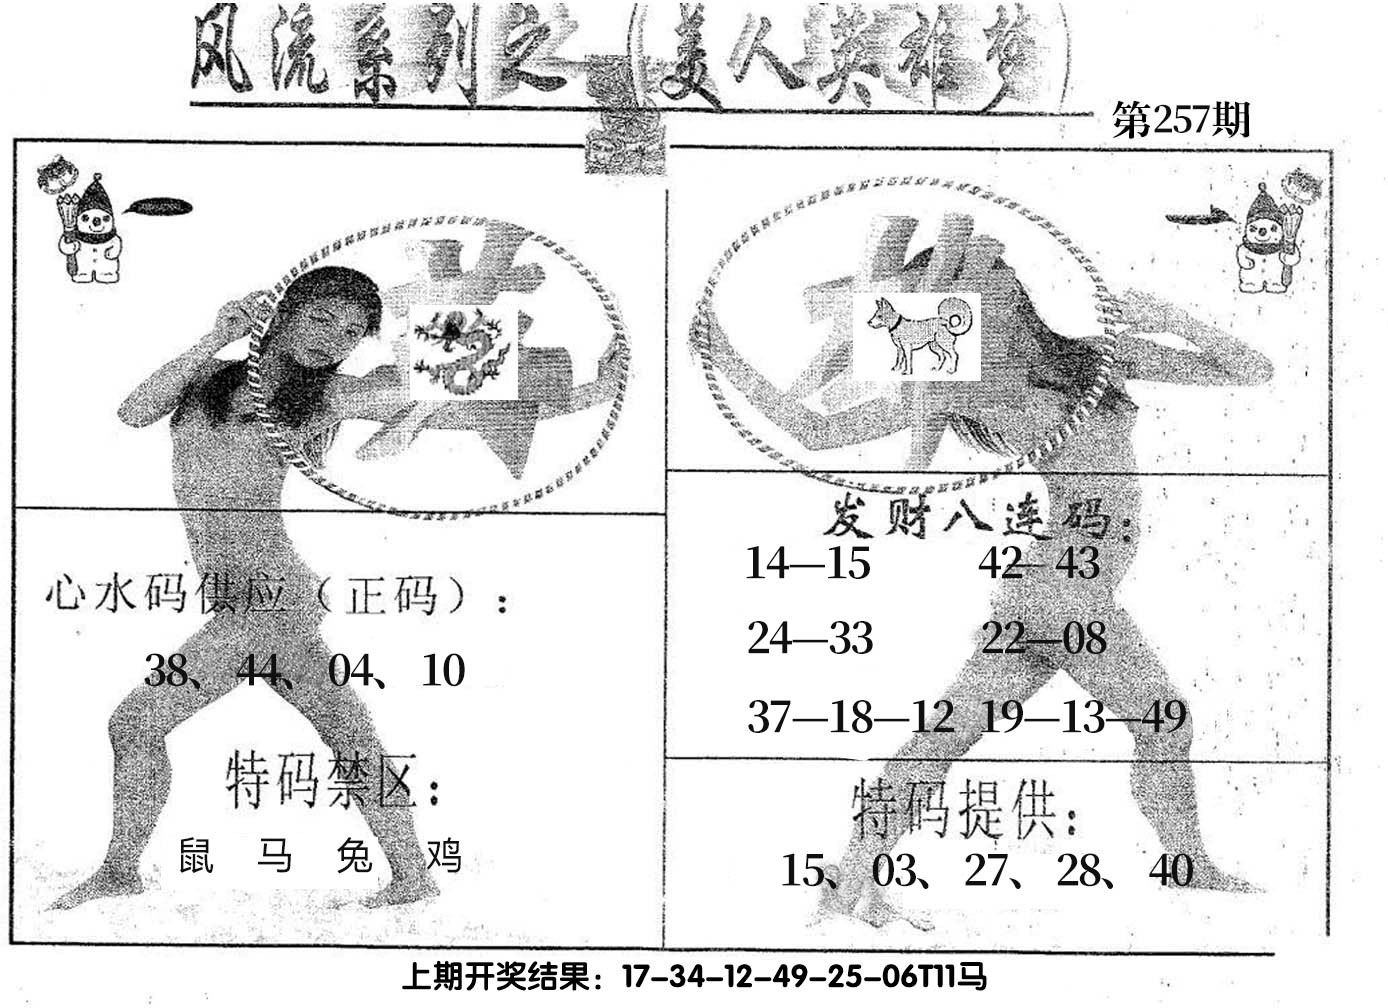 风流系列之 美人英雄梦
第257期
心水码供应（正码）：
38、44、04、10
特码禁区：
鼠 马 兔 鸡
发财八连码：
14—15 42—43
24—33 22—08
37—18—12 19—13—49
特码提供：
15、03、27、28、40
上期开奖结果：17-34-12-49-25-06T11马